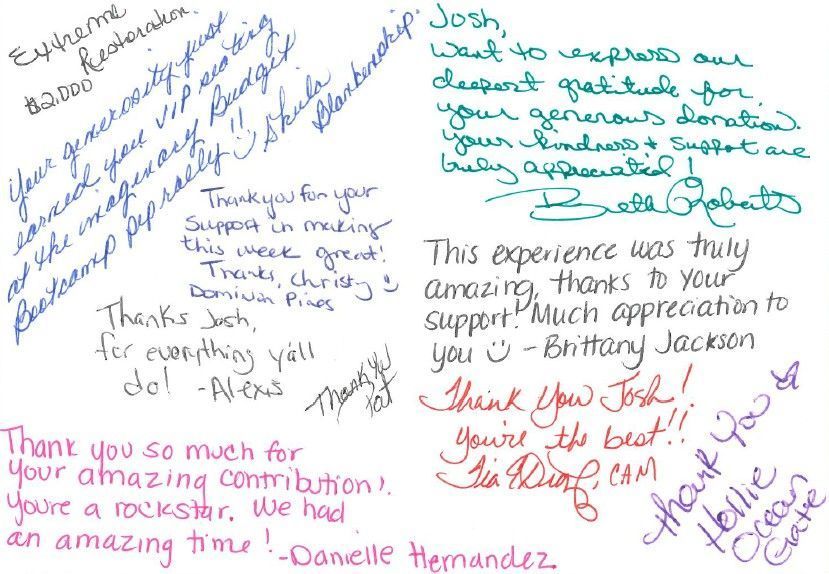 Extreme
Restoration
$2,000
Your generosity just
earned you VIP seating
at the imaginary Budget
Bootcamp pep rally!! Skula
Blankenship.
Josh,
Want to express our
deepest gratitude for
your generous donation.
Your kindness + support are
truly appreciated!
Beth Roberts
Thank you for your
Support in making
this week great!
Thanks, Christy
Dominion Pines
This experience was truly
amazing, thanks to your
support! Much appreciation to
you - Brittany Jackson
Thanks Josh,
for everything y'all
do! -Alexis
Thank You
Pat
Thank You Josh!
You're the best!!
Tia Diaz, CAM
Thank You
Hollie
Ocean
Gate
Thank you so much for
your amazing contribution!
You're a rockstar. We had
an amazing time! -Danielle Hernandez